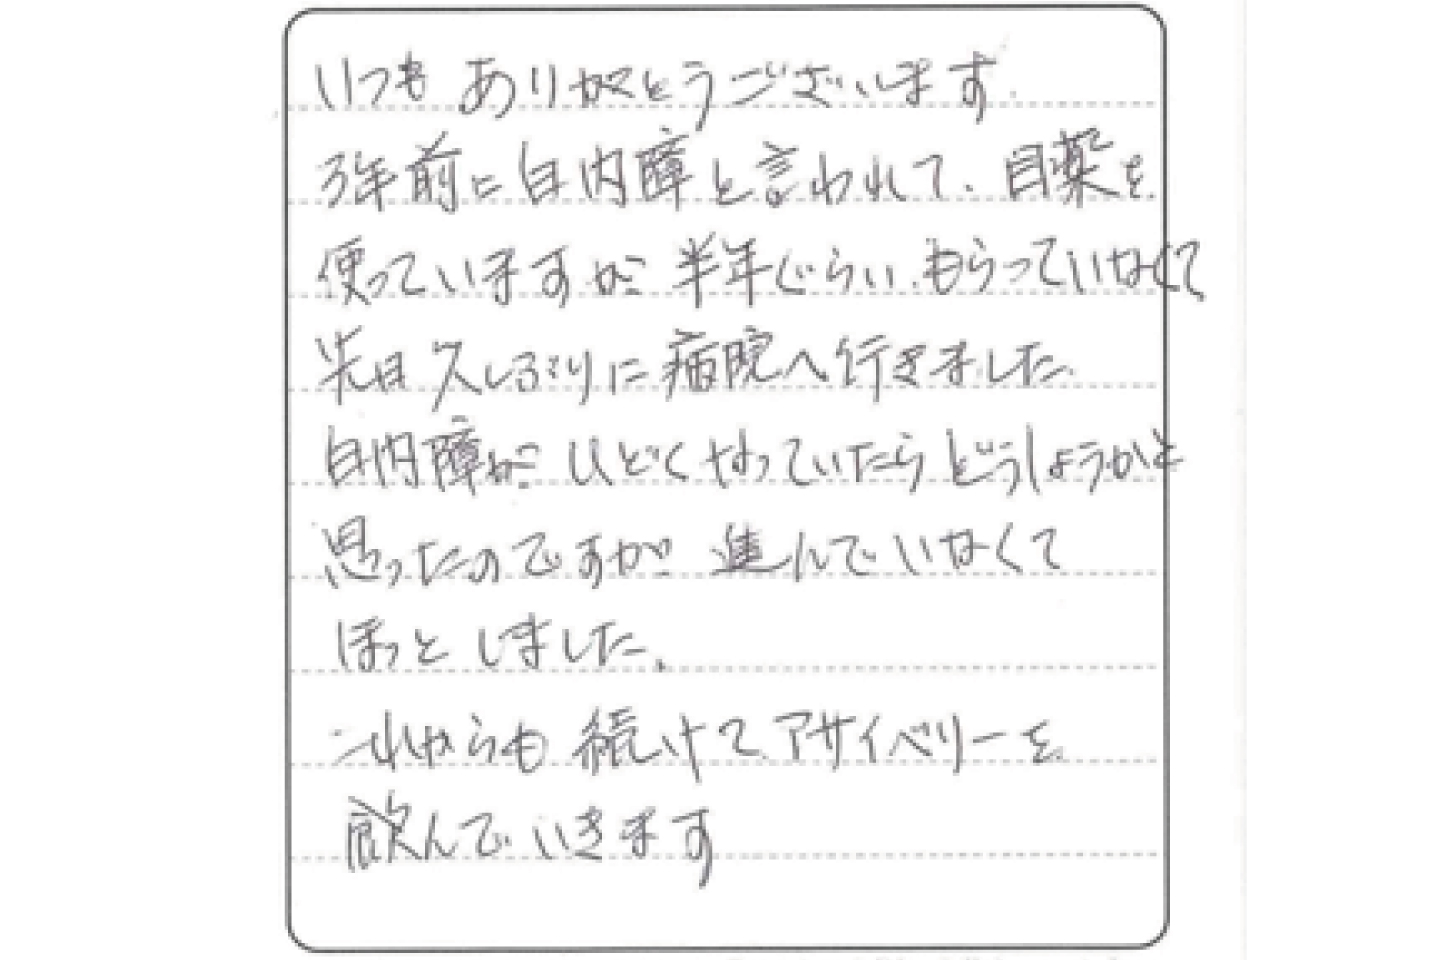 いつも ありがとうございます.
3年前に白内障と言われて、目薬を
使っていますが 半年ぐらい、もらっていなくて
先日 久しぶりに病院へ行きました.
白内障が ひどくなっていたら どうしようかと
思ったのですが 進んでいなくて
ほっと しました.
これからも 続けて アサイベリーを
飲んで いきます